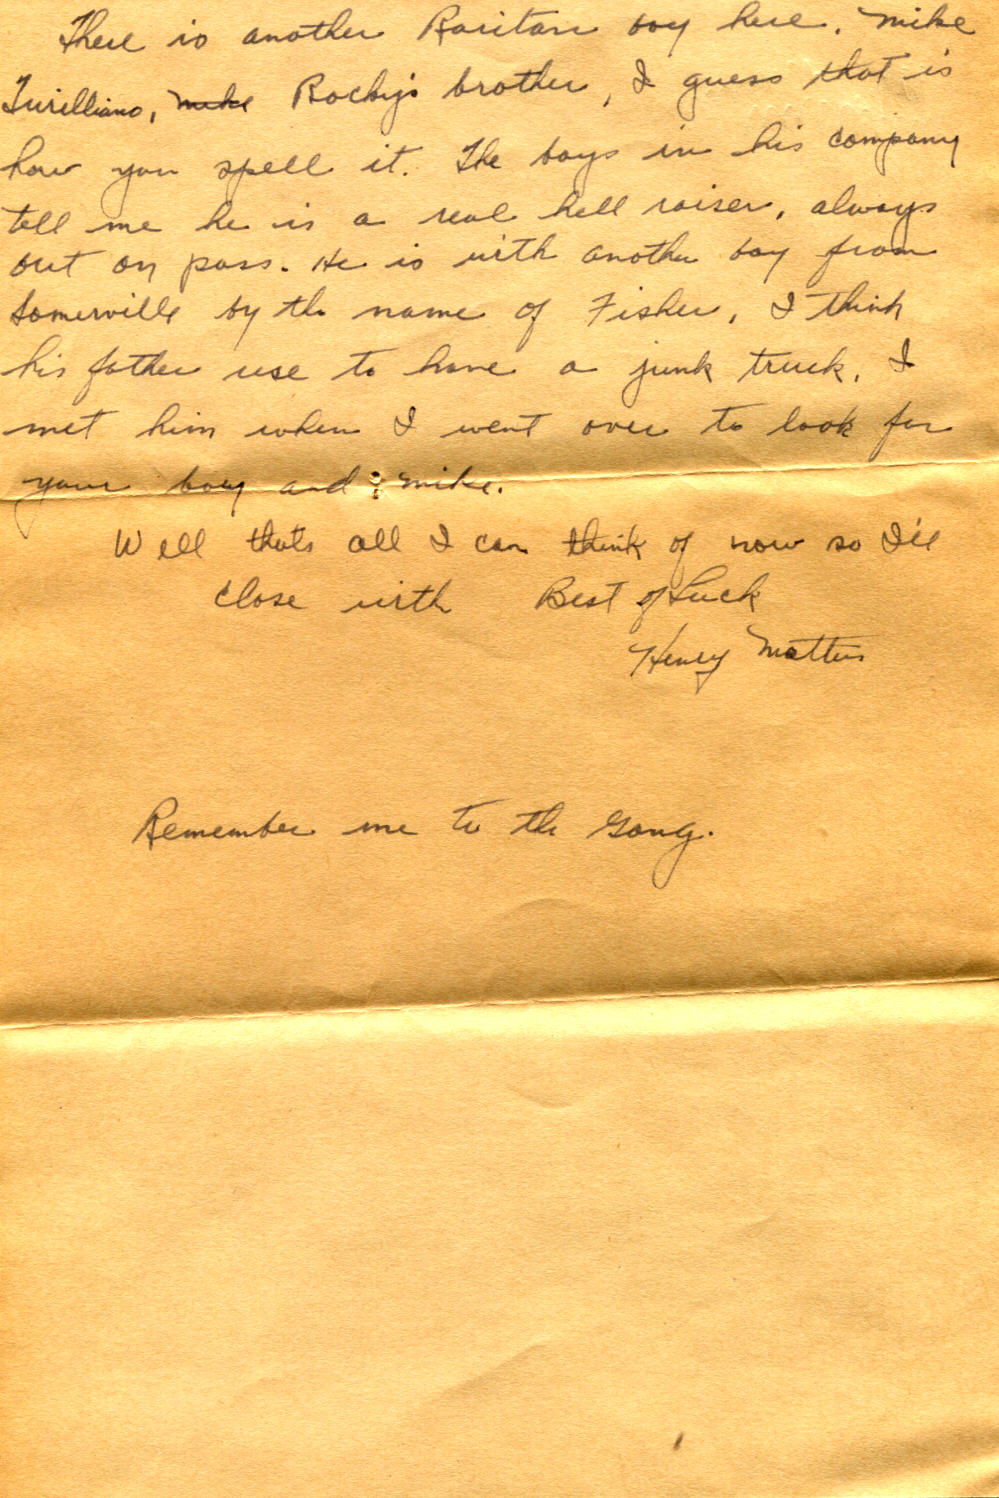 There is another Raritan boy here. Mike
Turilliano, mike Rocky's brother, I guess that is
how you spell it. The boys in his company
tell me he is a real hell raiser, always
out on pass. He is with another boy from
Somerville by the name of Fisher, I think
his father use to have a junk truck. I
met him when I went over to look for
your boy and Mike.
Well thats all I can think of now so I'll
close with Best of Luck
Henry Mattus
Remember me to the Gang.